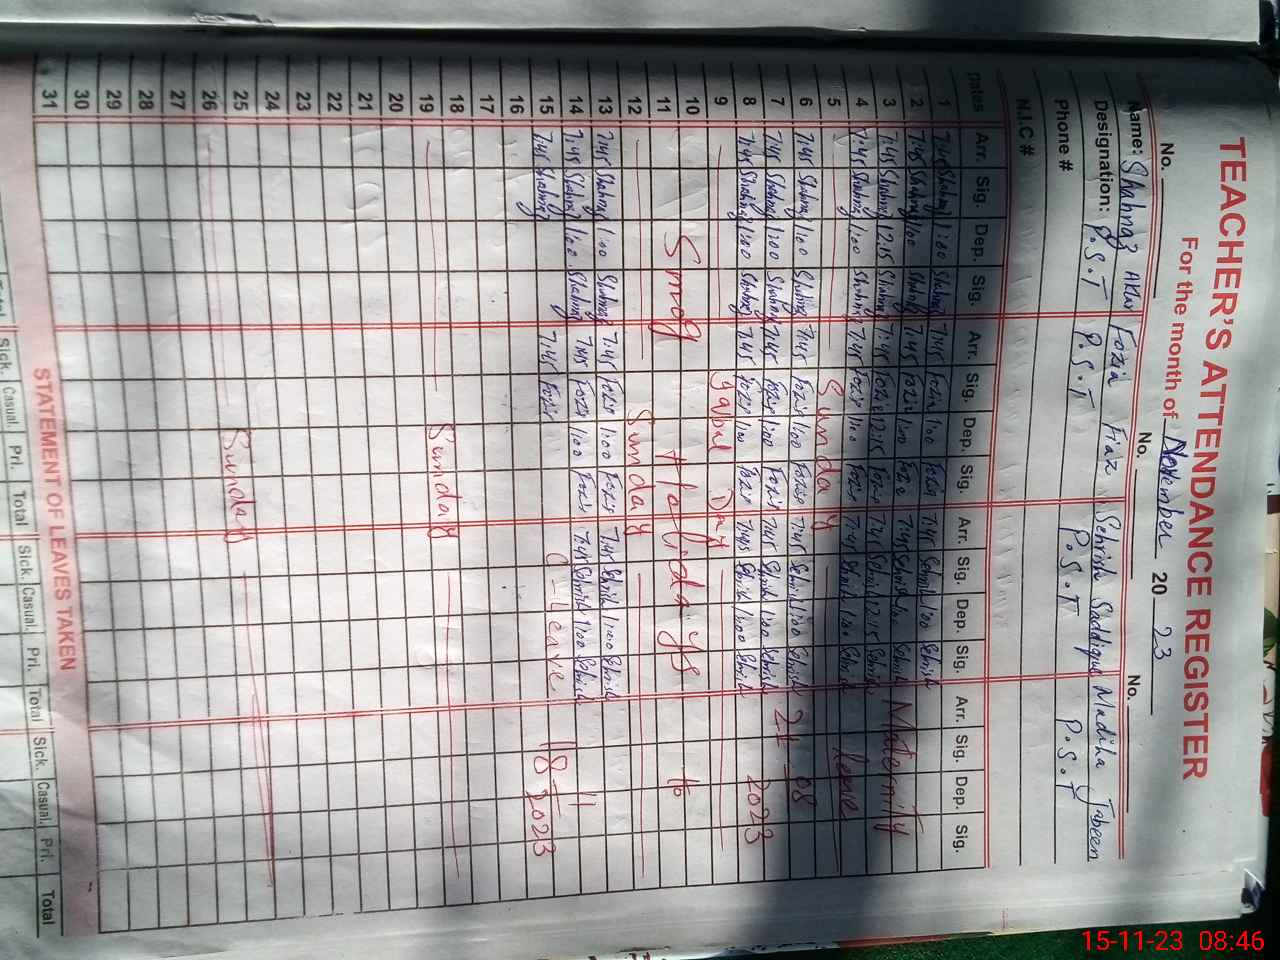 TEACHER'S ATTENDANCE REGISTER
For the month of November 2023
No. No. No.
Name: Shahnaz Akhtar Fozia Fiaz Sehrish Saddique Madiha Jabeen
Designation: P.S.T P.S.T P.S.T P.S.T
Phone #
N.I.C #
Dates Arr. Sig. Dep. Sig. Arr. Sig. Dep. Sig. Arr. Sig. Dep. Sig. Arr. Sig. Dep. Sig.
1 7:45 Shahnaz 1:00 Shahnaz 7:45 Fozia 1:00 Fozia 7:45 Sehrish 1:00 Sehrish
2 7:45 Shahnaz 1:00 Shahnaz 7:45 Fozia 1:00 Fozia 7:45 Sehrish 1:00 Sehrish
3 7:45 Shahnaz 12:15 Shahnaz 7:45 Fozia 12:15 Fozia 7:45 Sehrish 12:15 Sehrish Maternity
4 7:45 Shahnaz 1:00 Shahnaz 7:45 Fozia 1:00 Fozia 7:45 Sehrish 1:00 Sehrish
5 Sunday leave
6 7:45 Shahnaz 1:00 Shahnaz 7:45 Fozia 1:00 Fozia 7:45 Sehrish 1:00 Sehrish
7 7:45 Shahnaz 1:00 Shahnaz 7:45 Fozia 1:00 Fozia 7:45 Sehrish 1:00 Sehrish 21 08
8 7:45 Shahnaz 1:00 Shahnaz 7:45 Fozia 1:00 Fozia 7:45 Sehrish 1:00 Sehrish 2023
9 Iqbal Day
10
11 Smog Holidays to
12 Sunday
13 7:45 Shahnaz 1:00 Shahnaz 7:45 Fozia 1:00 Fozia 7:45 Sehrish 1:00 Sehrish
14 7:45 Shahnaz 1:00 Shahnaz 7:45 Fozia 1:00 Fozia 7:45 Sehrish 1:00 Sehrish 11
15 7:45 Shahnaz 7:45 Fozia C-Leave 18 2023
16
17
18
19 Sunday
20
21
22
23
24
25
26 Sunday
27
28
29
30
31
STATEMENT OF LEAVES TAKEN
Total Sick. Casual. Pri. Total Sick. Casual. Pri. Total Sick. Casual. Pri. Total
15-11-23 08:46